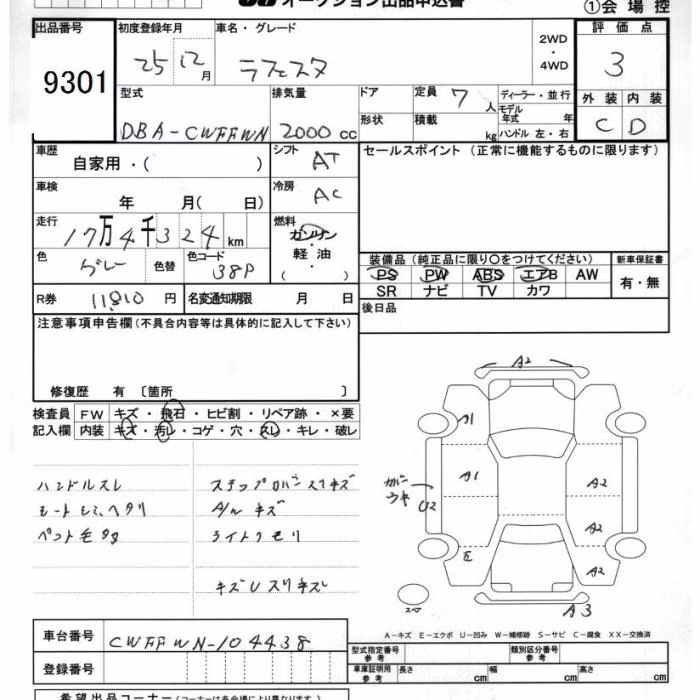 オークション出品申込書
①会場控
出品番号 初度登録年月 車名・グレード 2WD・4WD 評価点
9301 25 12月 ラフェスタ 3
型式 排気量 ドア 定員 7人 ディーラー・並行
モデル年式 年
外装 内装
DBA-CWFFWN 2000cc 形状 積載 kg ハンドル 左・右 C D
車歴 自家用・( ) シフト AT セールスポイント(正常に機能するものに限ります)
車検 年 月( 日) 冷房 AC
走行 17万4千324km 燃料 ガソリン・軽油・( )
色 グレー 色替 色コード 38P
装備品(純正品に限り○をつけてください) 新車保証書
PS PW ABS エアB AW 有・無
SR ナビ TV カワ
R券 11,810円 名変通知期限 月 日 後日品
注意事項申告欄(不具合内容等は具体的に記入して下さい)
修復歴 有〔箇所 〕
検査員記入欄 FW キズ・飛石・ヒビ割・リペア跡・×要
内装 キズ・汚レ・コゲ・穴・スレ・キレ・破レ
ハンドルスレ ステップロバンスリキズ
シートシミ、ヘタリ A/Wキズ
ペット毛 ライトクモリ
キズUスリキズ
A2
A1
A1 A2
ガバウキ U2
A2
E A2
スペア A3
A-キズ E-エクボ U-凹み W-補修跡 S-サビ C-腐食 XX-交換済
車台番号 CWFFWN-104438
型式指定番号 参考 類別区分番号 参考
登録番号 車庫証明用 参考 長さ cm 幅 cm 高さ cm
希望出品コーナー(コーナーは各会場により異なります)